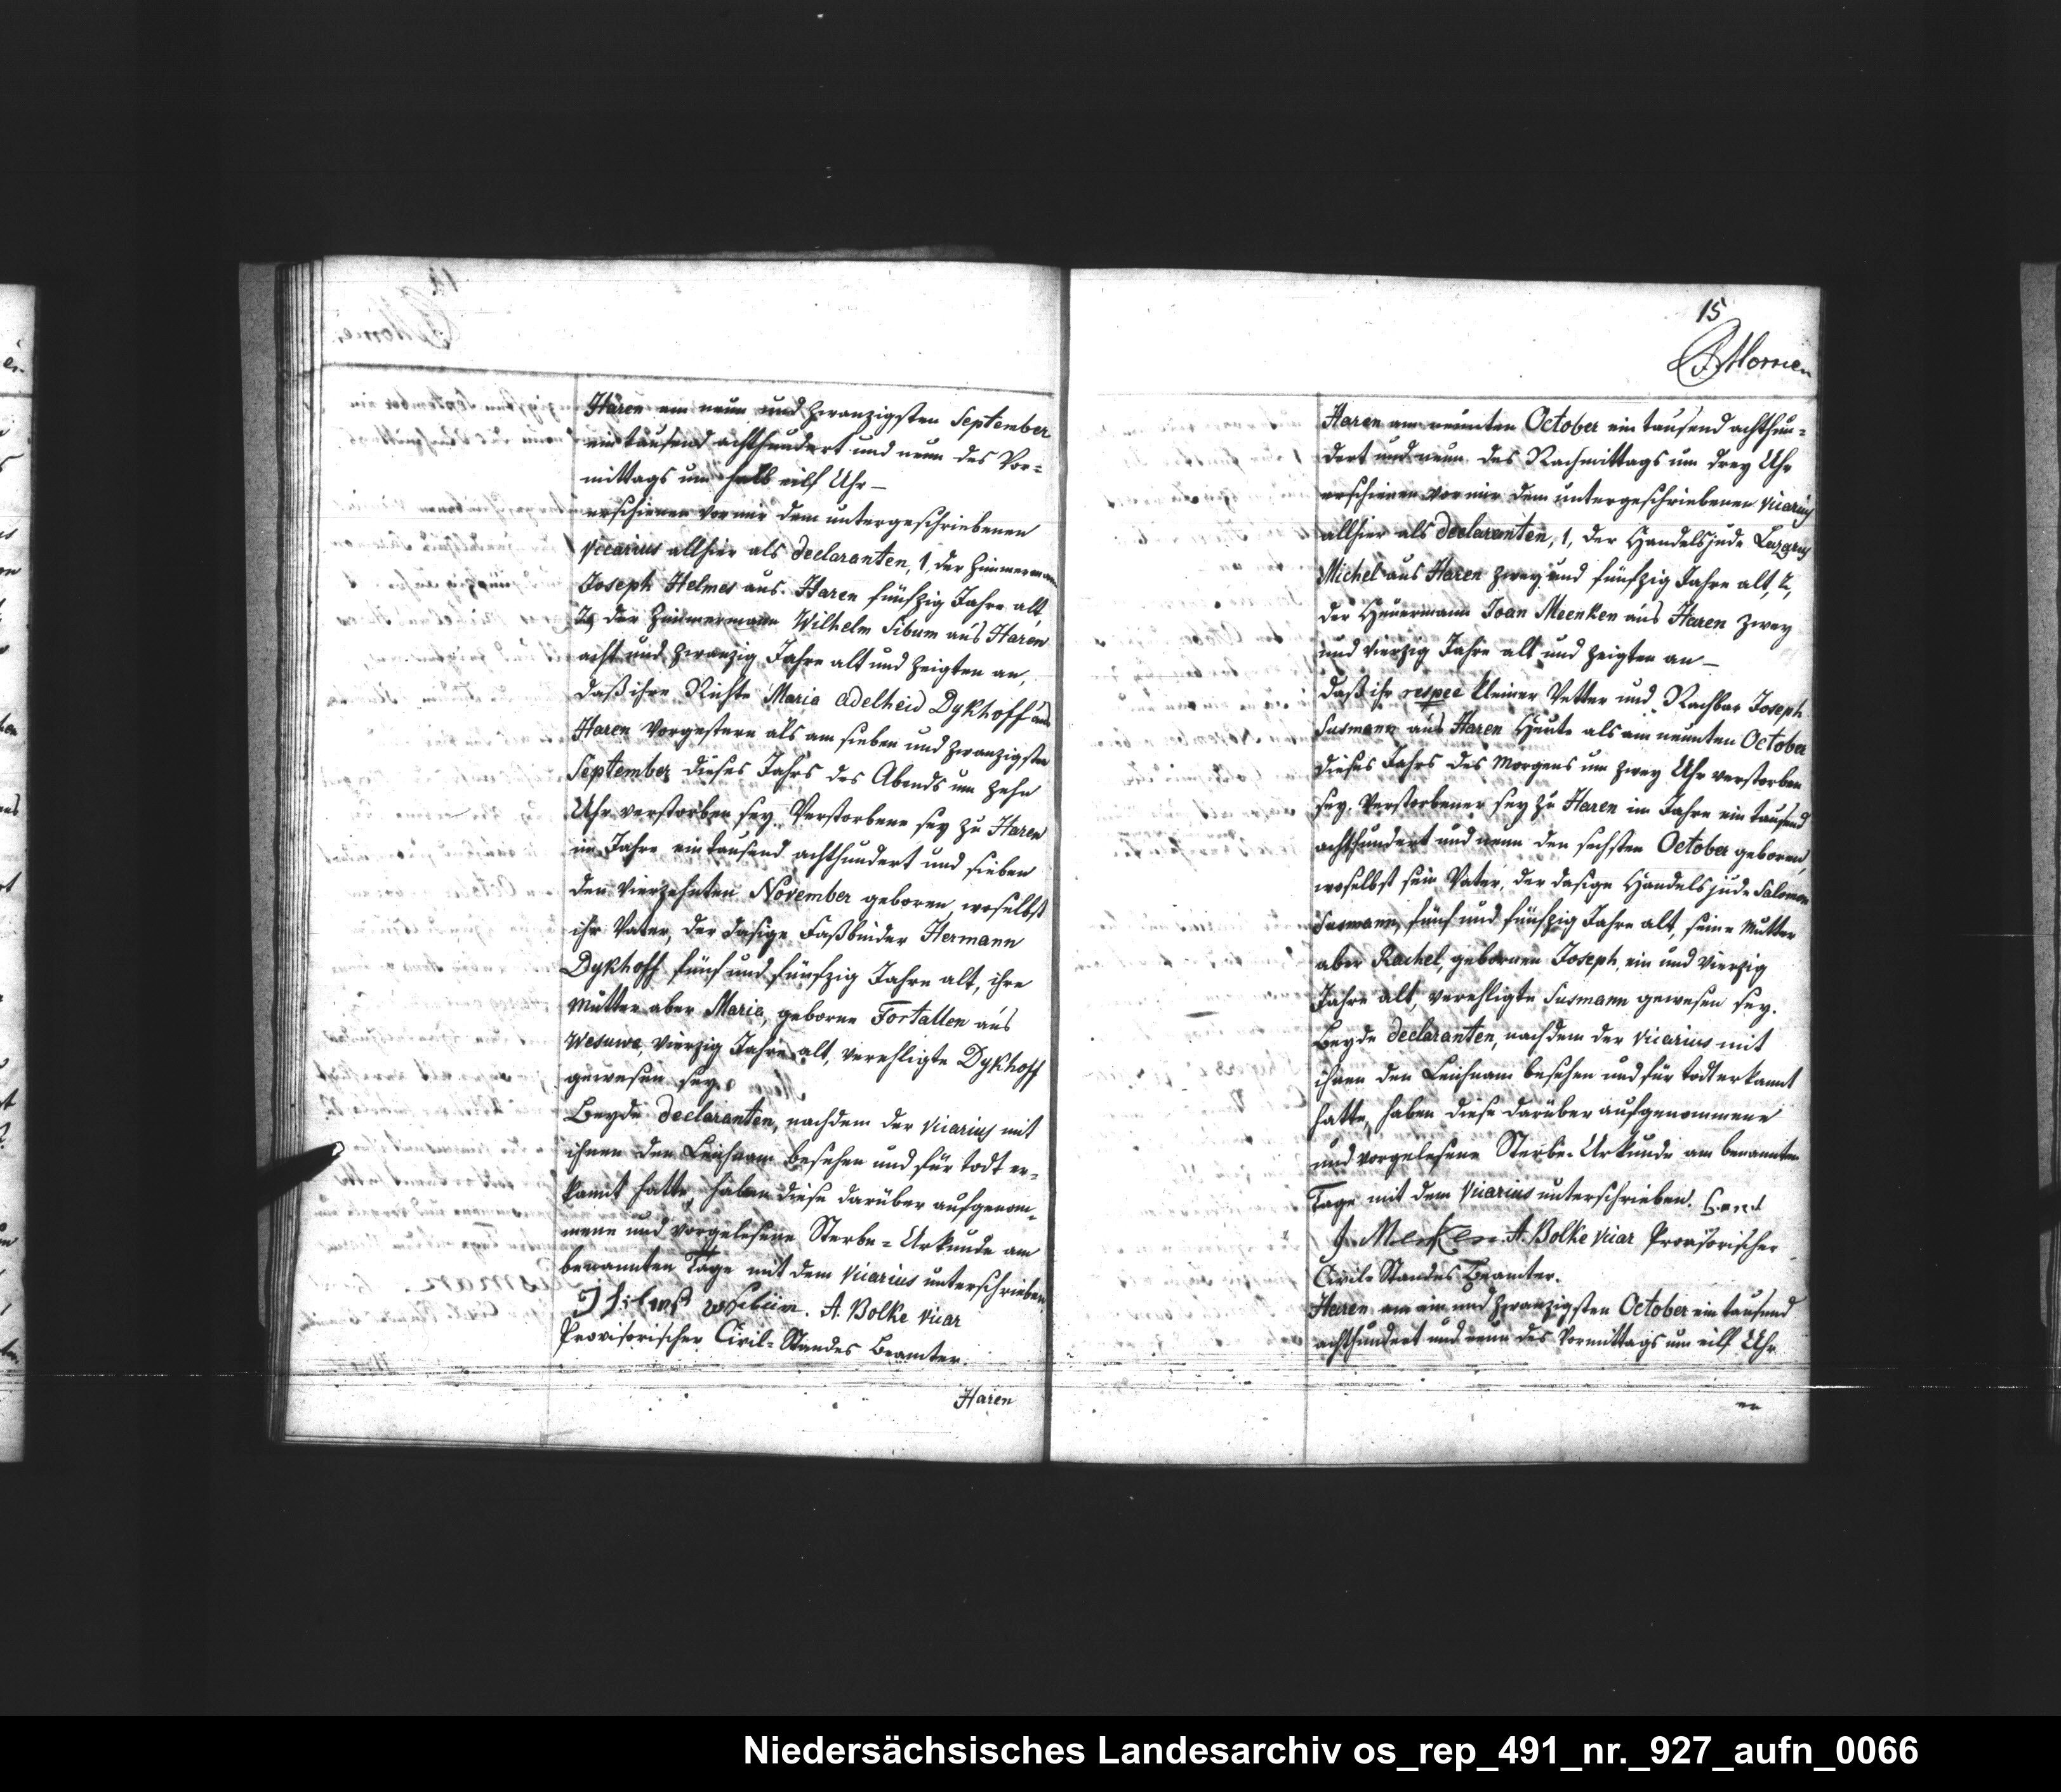 Haren am neun und zwanzigsten September
ein tausend achthundert und neun des Vor=
mittags um halb eilf Uhr –
erschienen vor mir dem untergeschriebenen
Vicarius allhier als declaranten, 1, der Zimmermann
Joseph Helmes aus Haren fünfzig Jahre alt
2, der Zimmermann Wilhelm Sibum aus Haren
acht und zwanzig Jahre alt und zeigten an,
daß ihre Nichte Maria Adelheid Dykhoff aus
Haren vorgestern als am sieben und zwanzigsten
September dieses Jahrs des Abends um zehn
Uhr verstorben sey. Verstorbene sey zu Haren
im Jahre ein tausend achthundert und sieben
den vierzehnten November geboren, woselbst
ihr Vater, der dasige Faßbinder Hermann
Dykhoff fünf und fünfzig Jahre alt, ihre
Mutter aber Maria, geborne Fortallen aus
Wesuwe, vierzig Jahre alt, verehligte Dykhoff
gewesen sey.
Beyde declaranten, nachdem der Vicarius mit
ihnen den Leichnam besehen und für todt er=
kannt hatte, haben diese darüber aufgenom=
mene und vorgelesene Sterbe=Urkunde am
benannten Tage mit dem Vicarius unterschrieben
A. Bolke Vicar
Provisorischer Civil=Standes Beamter.
Haren
15
Haren am neunten October ein tausend achthun=
dert und neun des Nachmittags um drey Uhr
erschienen vor mir dem untergeschriebenen Vicarius
allhier als declaranten, 1, der Handelsjude Lazarus
Michel aus Haren zwey und fünfzig Jahre alt, 2,
der Heuermann Joan Meenken aus Haren zwey
und vierzig Jahre alt und zeigten an –
daß ihr respec kleiner Vetter und Nachbar Joseph
Susmann aus Haren Heute als am neunten October
dieses Jahrs des Morgens um zwey Uhr verstorben
sey. Verstorbener sey zu Haren im Jahre ein tausend
achthundert und neun den sechsten October geboren,
woselbst sein Vater, der dasige Handelsjude Salomon
Susmann, fünf und fünfzig Jahre alt, seine Mutter
aber Rachel, gebornen Joseph, ein und vierzig
Jahre alt, verehligte Susmann gewesen sey.
Beyde declaranten, nachdem der Vicarius mit
ihnen den Leichnam besehen und für todt erkannt
hatte, haben diese darüber aufgenommene
und vorgelesene Sterbe=Urkunde am benannten
Tage mit dem Vicarius unterschrieben.
J. Menken A. Bolke Vicar Provisorischer
Civil=Standes Beamter.
Haren am ein und zwanzigsten October ein tausend
achthundert und neun des Vormittags um eilf Uhr
er
Niedersächsisches Landesarchiv os_rep_491_nr._927_aufn_0066